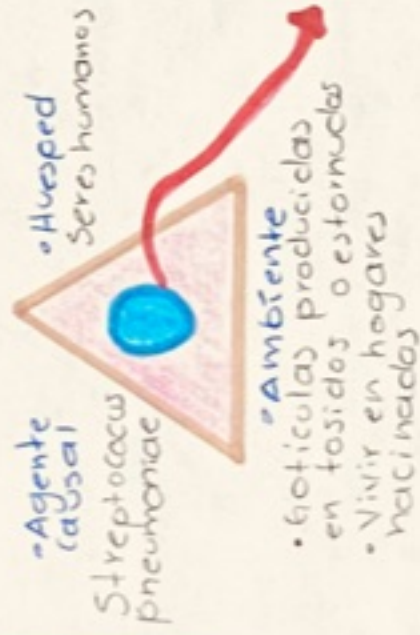 • Agente
causal
Streptococus
pneumoniae
• Huesped
seres humanos
• Ambiente
• Goticulas producidas
en tosidos o estornudos
• Vivir en hogares
hacinados